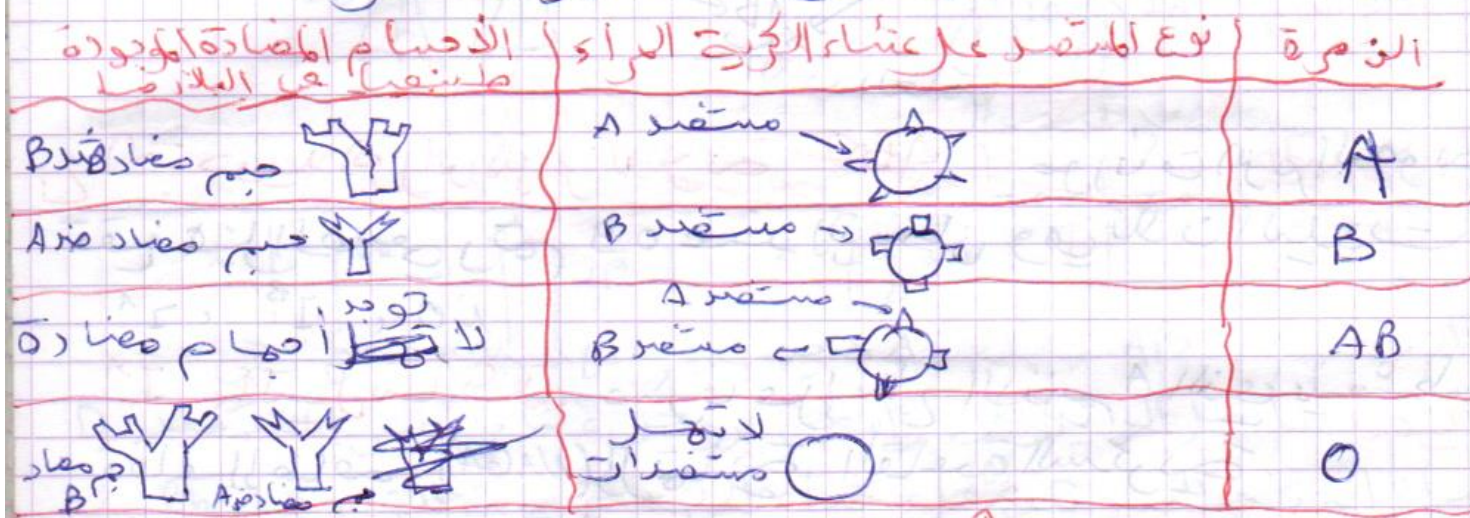 الزمرة | نوع المستضد على غشاء الكرية الحمراء | الأجسام المضادة الموجودة
طبيعيا في البلازما
A | مستضد A | جسم مضاد ضد B
B | مستضد B | جسم مضاد ضد A
AB | مستضد A
مستضد B | لا توجد أجسام مضادة
O | لا تحمل
مستضدات | جسم مضاد ضد A
جسم مضاد
B